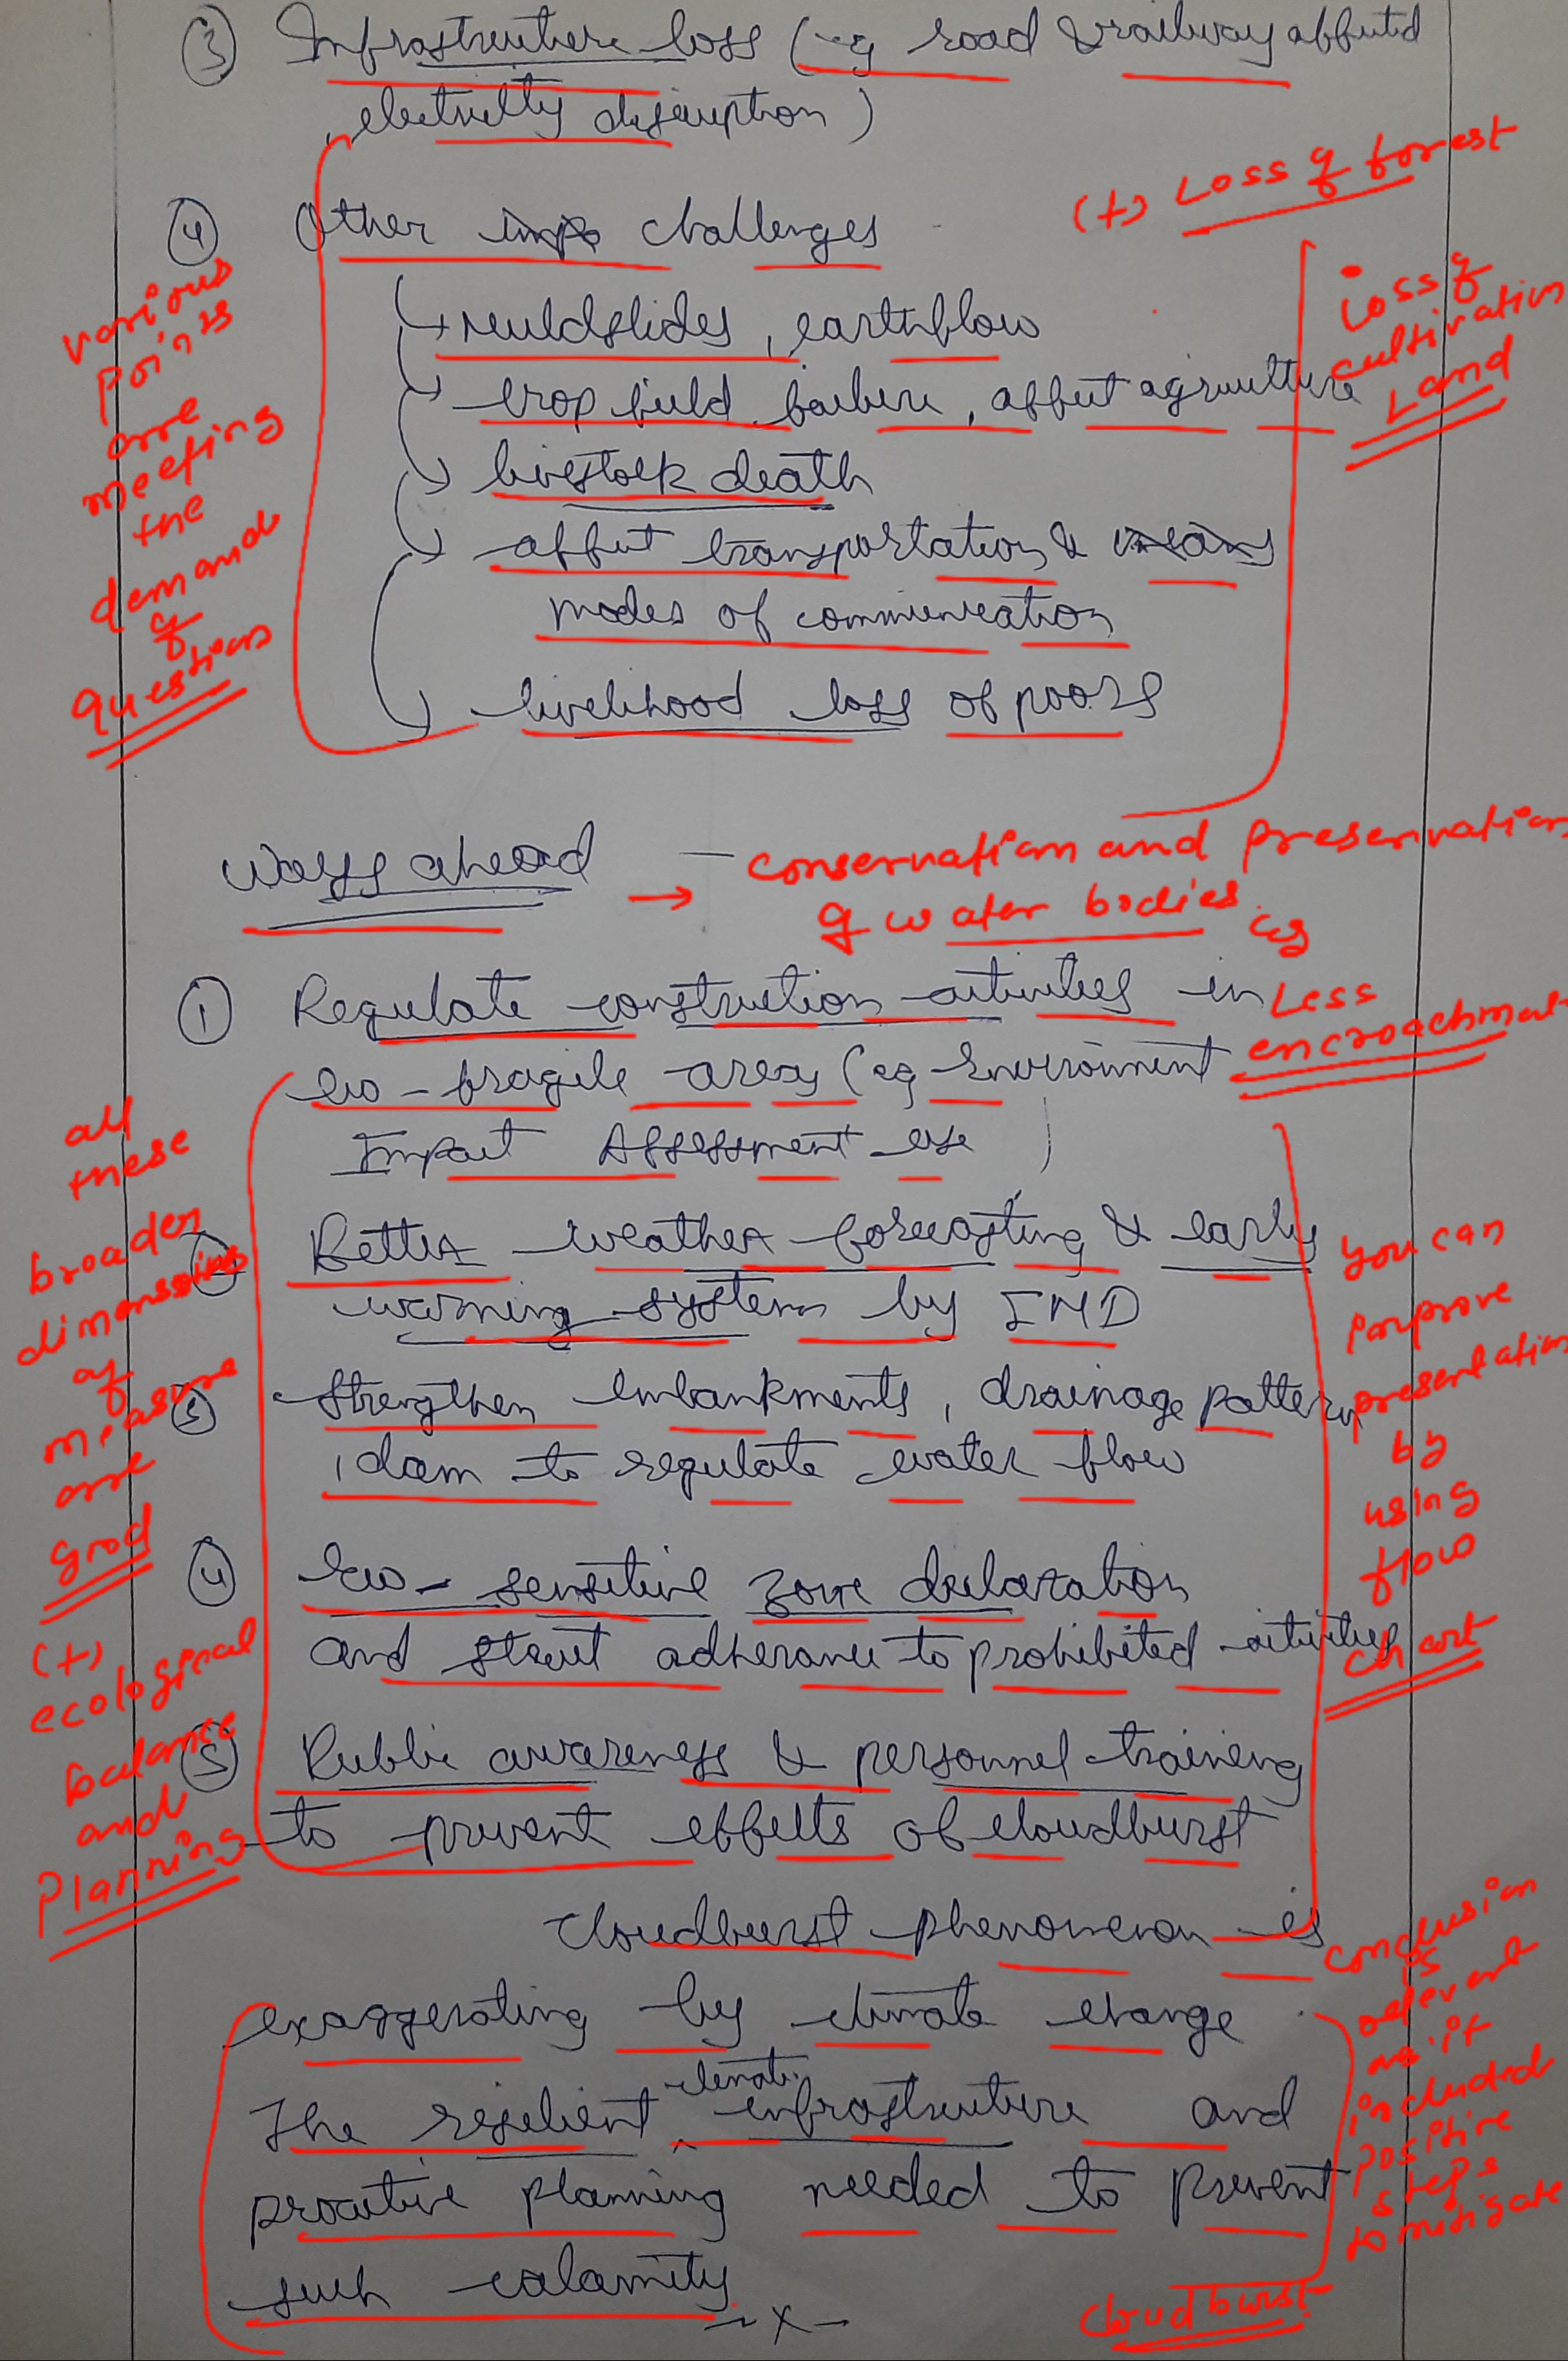 ③ Infrastructure loss (eg road & railway affected
, electricity disruption)
(+) Loss of forest
④ Other challenges
Loss of
cultivation
Land
various
points
are
meeting
the
demand
of
questions
↳ mudslides, earthflow
→ crop field failure, affect agriculture
→ livestock death
→ affect transportation &
modes of communication
→ livelihood loss of poors
Ways ahead → conservation and preservation
of water bodies. eg
Less
encroachment
① Regulate construction activities in
eco-fragile areas (eg Environment
Impact Assessment use)
all
these
broader
dimensions
of
measure
are
good
(+)
ecological
balance
and
Planning
② Better weather forecasting & early
warning system by IMD
③ Strengthen embankments, drainage pattern
, dam to regulate water flow
④ Eco-sensitive zone declaration
and strict adherance to prohibited activities
⑤ Public awareness & personnel training
to prevent effects of cloudburst
you can
presentation
by
using
flow
chart
Cloudburst phenomenon is
exaggerating by climate change
The resilient climatic infrastructure and
proactive planning needed to prevent
such calamity
-x-
conclusion
is
relevant
as it
included
positive
steps
to mitigate
cloudburst